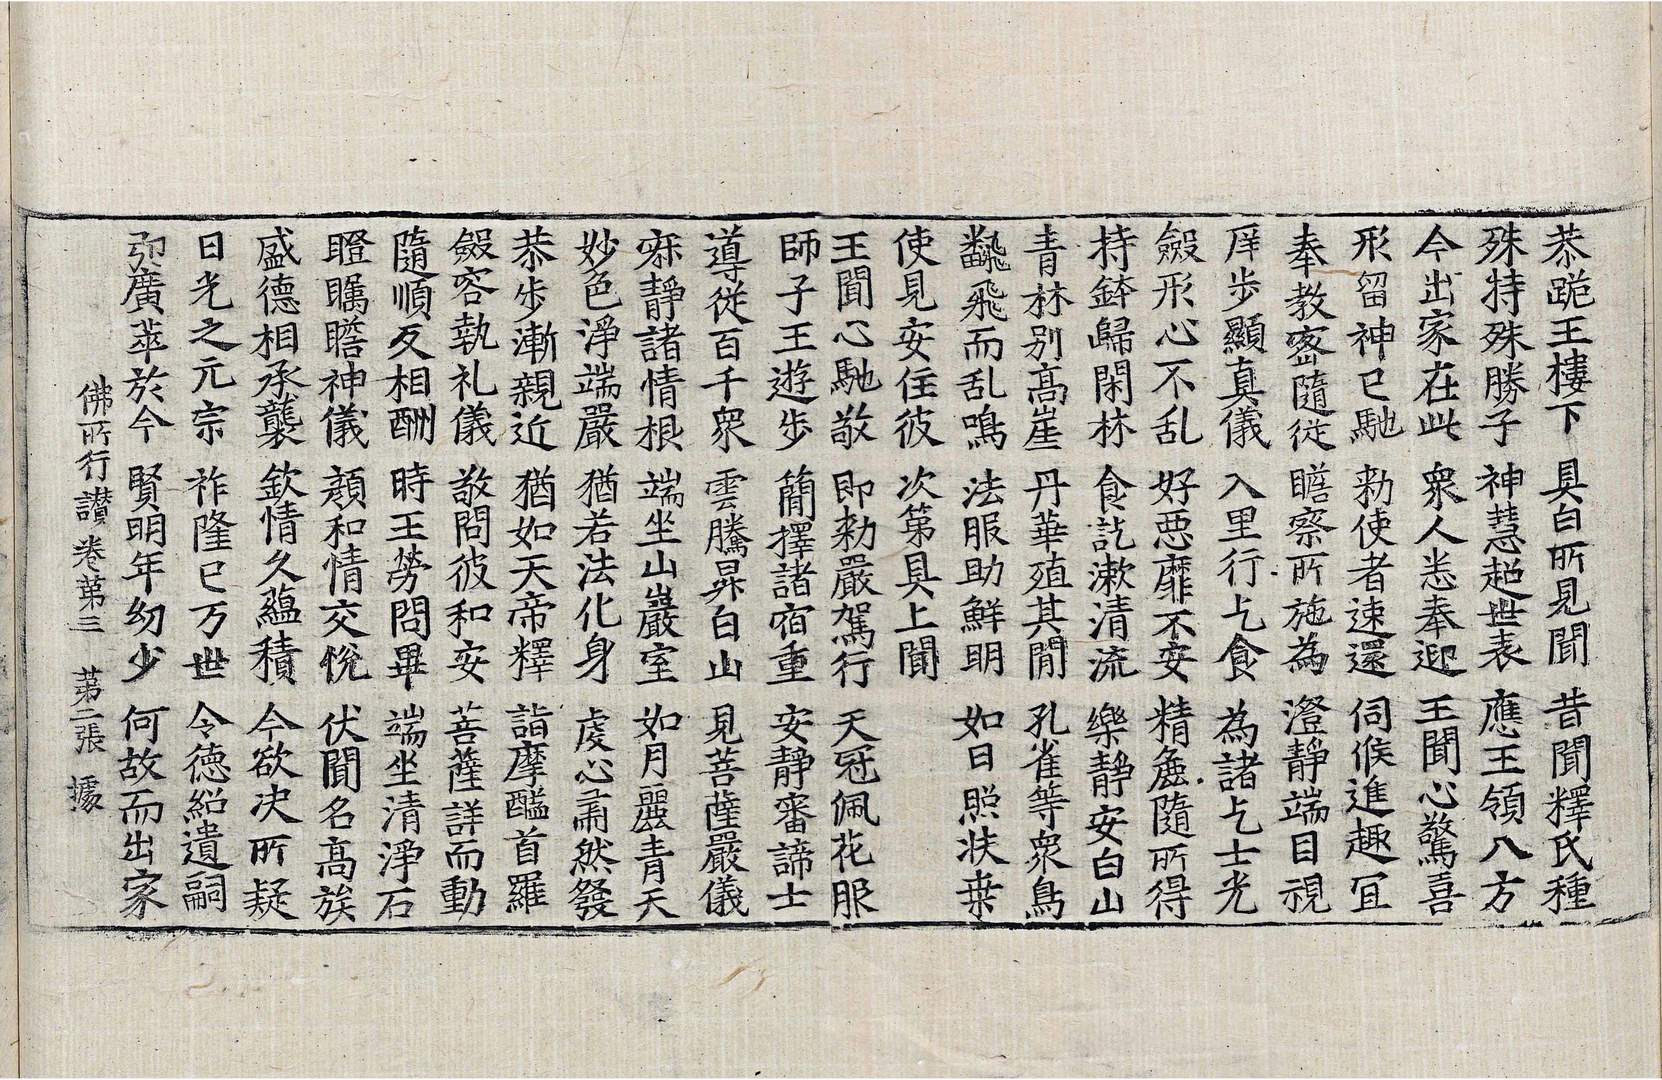 恭跪王樓下　具白所見聞　昔聞釋氏種
殊特殊勝子　神慧超世表　應王領八方
今出家在此　衆人悉奉迎　王聞心驚喜
形留神已馳　勑使者速還　伺候進趣冝
奉教密隨從　瞻察所施為　澄靜端目視
庠步顯真儀　入里行乞食　為諸乞士光
斂形心不乱　好惡靡不安　精麁隨所得
持鉢歸閑林　食訖漱清流　樂靜安白山
青林别高崖　丹華殖其間　孔雀等衆鳥
飜飛而乱鳴　法服助鮮明　如日照扶桒
使見安住彼　次第具上聞
王聞心馳敬　即勑嚴駕行　天冠佩花服
師子王遊步　簡擇諸宿重　安靜審諦士
導從百千衆　雲騰昇白山　見菩薩嚴儀
寂靜諸情根　端坐山巖室　如月麗青天
妙色淨端嚴　猶若法化身　虔心肅然發
恭步漸親近　猶如天帝釋　詣摩醯首羅
斂容執礼儀　敬問彼和安　菩薩詳而動
隨順反相酬　時王勞問畢　端坐清淨石
瞪矚瞻神儀　顏和情交悅　伏聞名高族
盛德相承襲　欽情久蘊積　今欲决所疑
日光之元宗　祚隆已万世　令德紹遺嗣
弥廣萃於今　賢明年幼少　何故而出家
佛所行讃卷苐三　苐二張　據